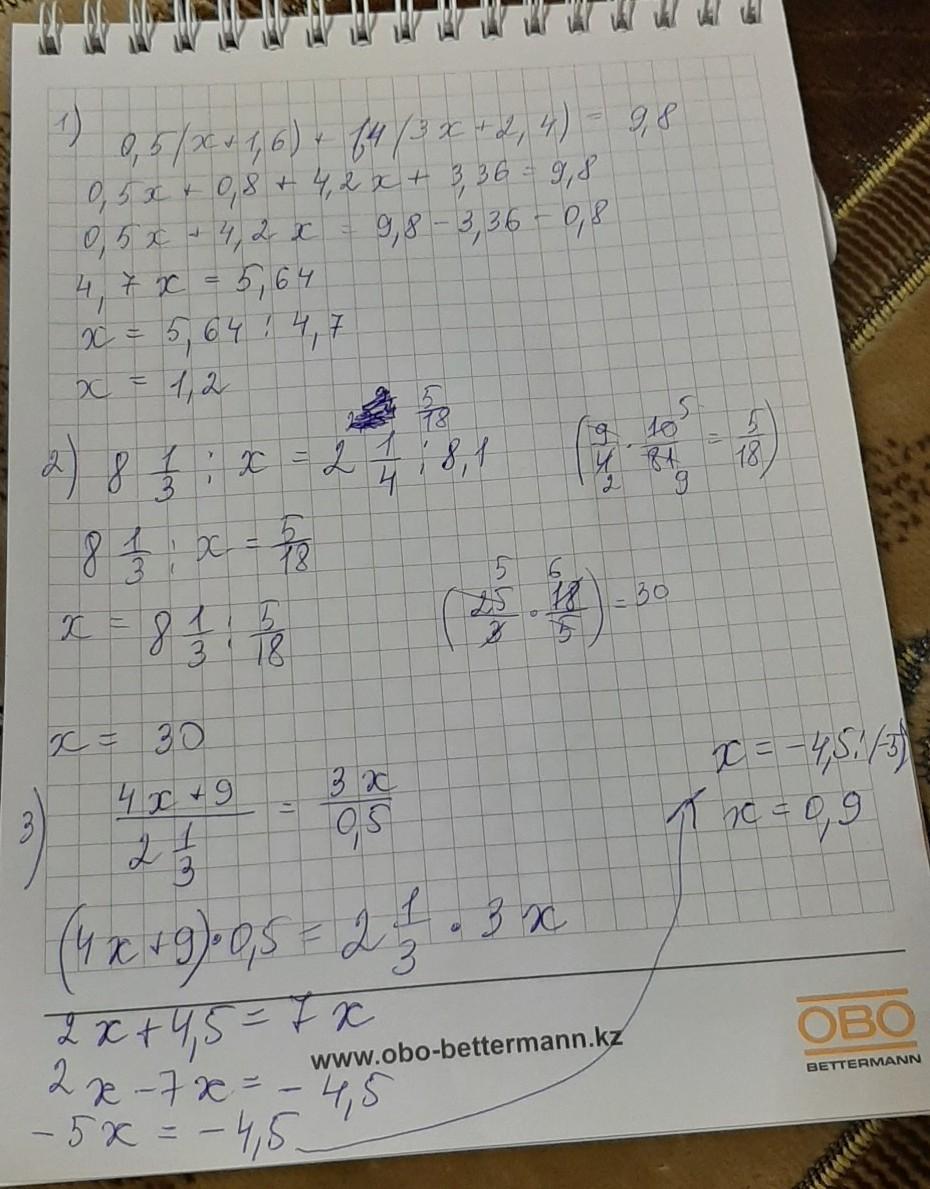 1) 0,5(x+1,6) + 1,4(3x+2,4) = 9,8
0,5x + 0,8 + 4,2x + 3,36 = 9,8
0,5x + 4,2x = 9,8 - 3,36 - 0,8
4,7x = 5,64
x = 5,64 : 4,7
x = 1,2
5/18
2) 8 1/3 : x = 2 1/4 : 8,1 (9/4 2 · 10 5/81 9 = 5/18)
8 1/3 : x = 5/18
x = 8 1/3 : 5/18 (25 5/3 · 18 6/5) = 30
x = 30
3) (4x+9)/(2 1/3) = 3x/0,5
(4x+9)·0,5 = 2 1/3 · 3x
2x + 4,5 = 7x
2x - 7x = - 4,5
-5x = -4,5
x = -4,5 : (-5)
x = 0,9
www.obo-bettermann.kz
OBO
BETTERMANN